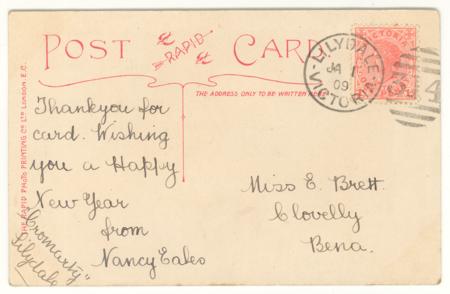 POST CARD
RAPID
LILYDALE
JA 1
09
VICTORIA
VICTORIA
THE ADDRESS ONLY TO BE WRITTEN HERE
Thankyou for
card. Wishing
you a Happy
New Year
from
Nancy Eales
"Cromarty"
Lilydale
Miss E. Brett.
Clovelly
Bena.
THE RAPID PHOTO PRINTING CO LTD LONDON, E.C.